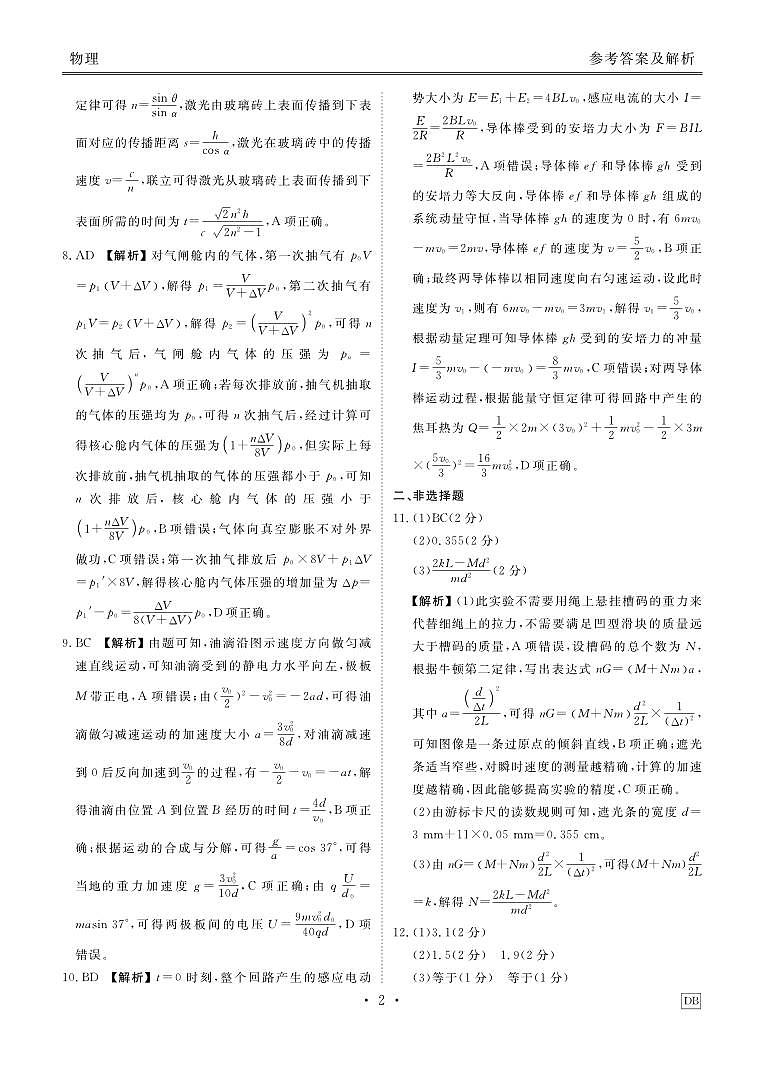 物理
参考答案及解析
定律可得 n=sin θ/sin α,激光由玻璃砖上表面传播到下表
面对应的传播距离 s=h/cos α,激光在玻璃砖中的传播
速度 v=c/n,联立可得激光从玻璃砖上表面传播到下
表面所需的时间为 t=√2n²h/(c√(2n²-1)),A 项正确。
8. AD 【解析】对气闸舱内的气体,第一次抽气有 p₀V
=p₁(V+ΔV),解得 p₁=V/(V+ΔV)p₀,第二次抽气有
p₁V=p₂(V+ΔV),解得 p₂=(V/(V+ΔV))²p₀,可得 n
次抽气后,气闸舱内气体的压强为 pₙ=
(V/(V+ΔV))ⁿp₀,A 项正确;若每次排放前,抽气机抽取
的气体的压强均为 p₀,可得 n 次抽气后,经过计算可
得核心舱内气体的压强为(1+nΔV/8V)p₀,但实际上每
次排放前,抽气机抽取的气体的压强都小于 p₀,可知
n 次排放后,核心舱内气体的压强小于
(1+nΔV/8V)p₀,B 项错误;气体向真空膨胀不对外界
做功,C 项错误;第一次抽气排放后 p₀×8V+p₁ΔV
=p₁′×8V,解得核心舱内气体压强的增加量为 Δp=
p₁′-p₀=ΔV/8(V+ΔV)p₀,D 项正确。
9. BC 【解析】由题可知,油滴沿图示速度方向做匀减
速直线运动,可知油滴受到的静电力水平向左,极板
M 带正电,A 项错误;由(v₀/2)²-v₀²=-2ad,可得油
滴做匀减速运动的加速度大小 a=3v₀²/8d,对油滴减速
到 0 后反向加速到v₀/2的过程,有-v₀/2-v₀=-at,解
得油滴由位置 A 到位置 B 经历的时间 t=4d/v₀,B 项正
确;根据运动的合成与分解,可得g/a=cos 37°,可得
当地的重力加速度 g=3v₀²/10d,C 项正确;由 qU/d₀=
masin 37°,可得两极板间的电压 U=9mv₀²d₀/40qd,D 项
错误。
10. BD 【解析】t=0 时刻,整个回路产生的感应电动
势大小为 E=E₁+E₂=4BLv₀,感应电流的大小 I=
E/2R=2BLv₀/R,导体棒受到的安培力大小为 F=BIL
=2B²L²v₀/R,A 项错误;导体棒 ef 和导体棒 gh 受到
的安培力等大反向,导体棒 ef 和导体棒 gh 组成的
系统动量守恒,当导体棒 gh 的速度为 0 时,有 6mv₀
-mv₀=2mv,导体棒 ef 的速度为 v=5/2v₀,B 项正
确;最终两导体棒以相同速度向右匀速运动,设此时
速度为 v₁,则有 6mv₀-mv₀=3mv₁,解得 v₁=5/3v₀,
根据动量定理可知导体棒 gh 受到的安培力的冲量
I=5/3mv₀-(-mv₀)=8/3mv₀,C 项错误;对两导体
棒运动过程,根据能量守恒定律可得回路中产生的
焦耳热为 Q=1/2×2m×(3v₀)²+1/2mv₀²-1/2×3m
×(5v₀/3)²=16/3mv₀²,D 项正确。
二、非选择题
11. (1)BC(2 分)
(2)0.355(2 分)
(3)(2kL-Md²)/md²(2 分)
【解析】(1)此实验不需要用绳上悬挂槽码的重力来
代替细绳上的拉力,不需要满足凹型滑块的质量远
大于槽码的质量,A 项错误,设槽码的总个数为 N,
根据牛顿第二定律,写出表达式 nG=(M+Nm)a,
其中 a=(d/Δt)²/2L,可得 nG=(M+Nm)d²/2L×1/(Δt)²,
可知图像是一条过原点的倾斜直线,B 项正确;遮光
条适当窄些,对瞬时速度的测量越精确,计算的加速
度越精确,因此能够提高实验的精度,C 项正确。
(2)由游标卡尺的读数规则可知,遮光条的宽度 d=
3 mm+11×0.05 mm=0.355 cm。
(3)由 nG=(M+Nm)d²/2L×1/(Δt)²,可得(M+Nm)d²/2L
=k,解得 N=(2kL-Md²)/md²。
12. (1)3.1(2 分)
(2)1.5(2 分) 1.9(2 分)
(3)等于(1 分) 等于(1 分)
• 2 •
DB